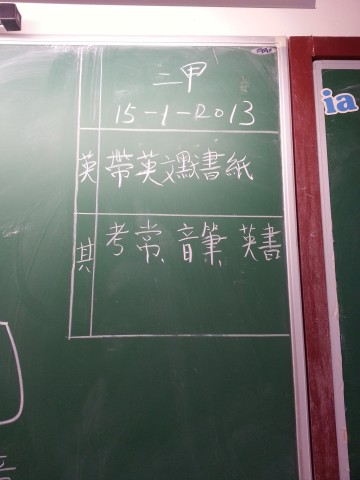 二甲
15-1-2013
英 帶英文默書紙
其 考常、音筆、英書
ia